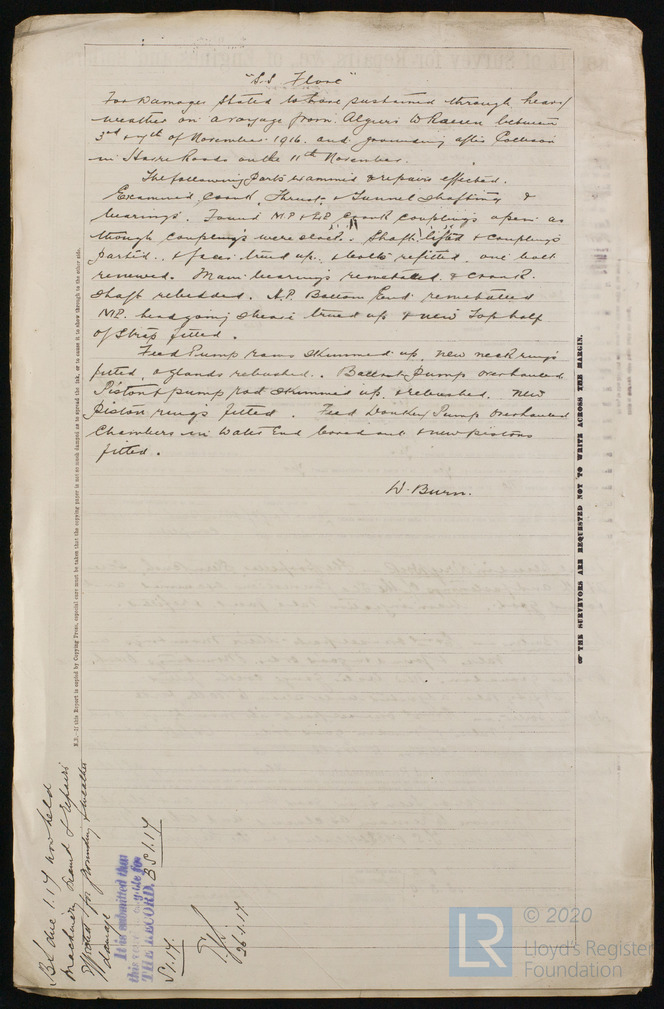 "S.S. Flore"
For Damages Stated to have sustained through heavy
weather on a voyage from Algiers to Rouen between
3rd & 7th of November 1916. and grounding after Collision
in Havre Roads on the 11th November.
The following parts examined & repairs effected.
Examined Crank, Thrust & Tunnel Shafting &
bearings. Found M.P. & L.P. Crank Couplings open as
though couplings were slack. Shaft lifted & couplings
parted, & faces trued up, & bolts refitted, one bolt
renewed. Main bearings remetalled & Crank
Shaft rebedded. H.P. Bottom End remetalled
M.P. head going sheave trued up & new Top half
of Strap fitted.
Feed Pump rams skimmed up, new neck rings
fitted, & glands rebushed. Ballast Pump overhauled
Piston & pump rod skimmed up & rebushed. New
piston rings fitted. Feed Donkey Pump overhauled
Chambers in Water End bored out & new pistons
fitted.
W. Burn.
N.B.—If this Report is copied by Copying Press, especial care must be taken that the copying paper is not so much damped as to spread the ink, or to cause it to show through to the other side.
THE SURVEYORS ARE REQUESTED NOT TO WRITE ACROSS THE MARGIN.
BS due 1.17 now held
Machinery Exam & repairs
for grounding & weather
damage
It is submitted that
this vessel is eligible for
THE RECORD. BS 1.17
S 1.17
26.1.17
LR
© 2020
Lloyd's Register
Foundation